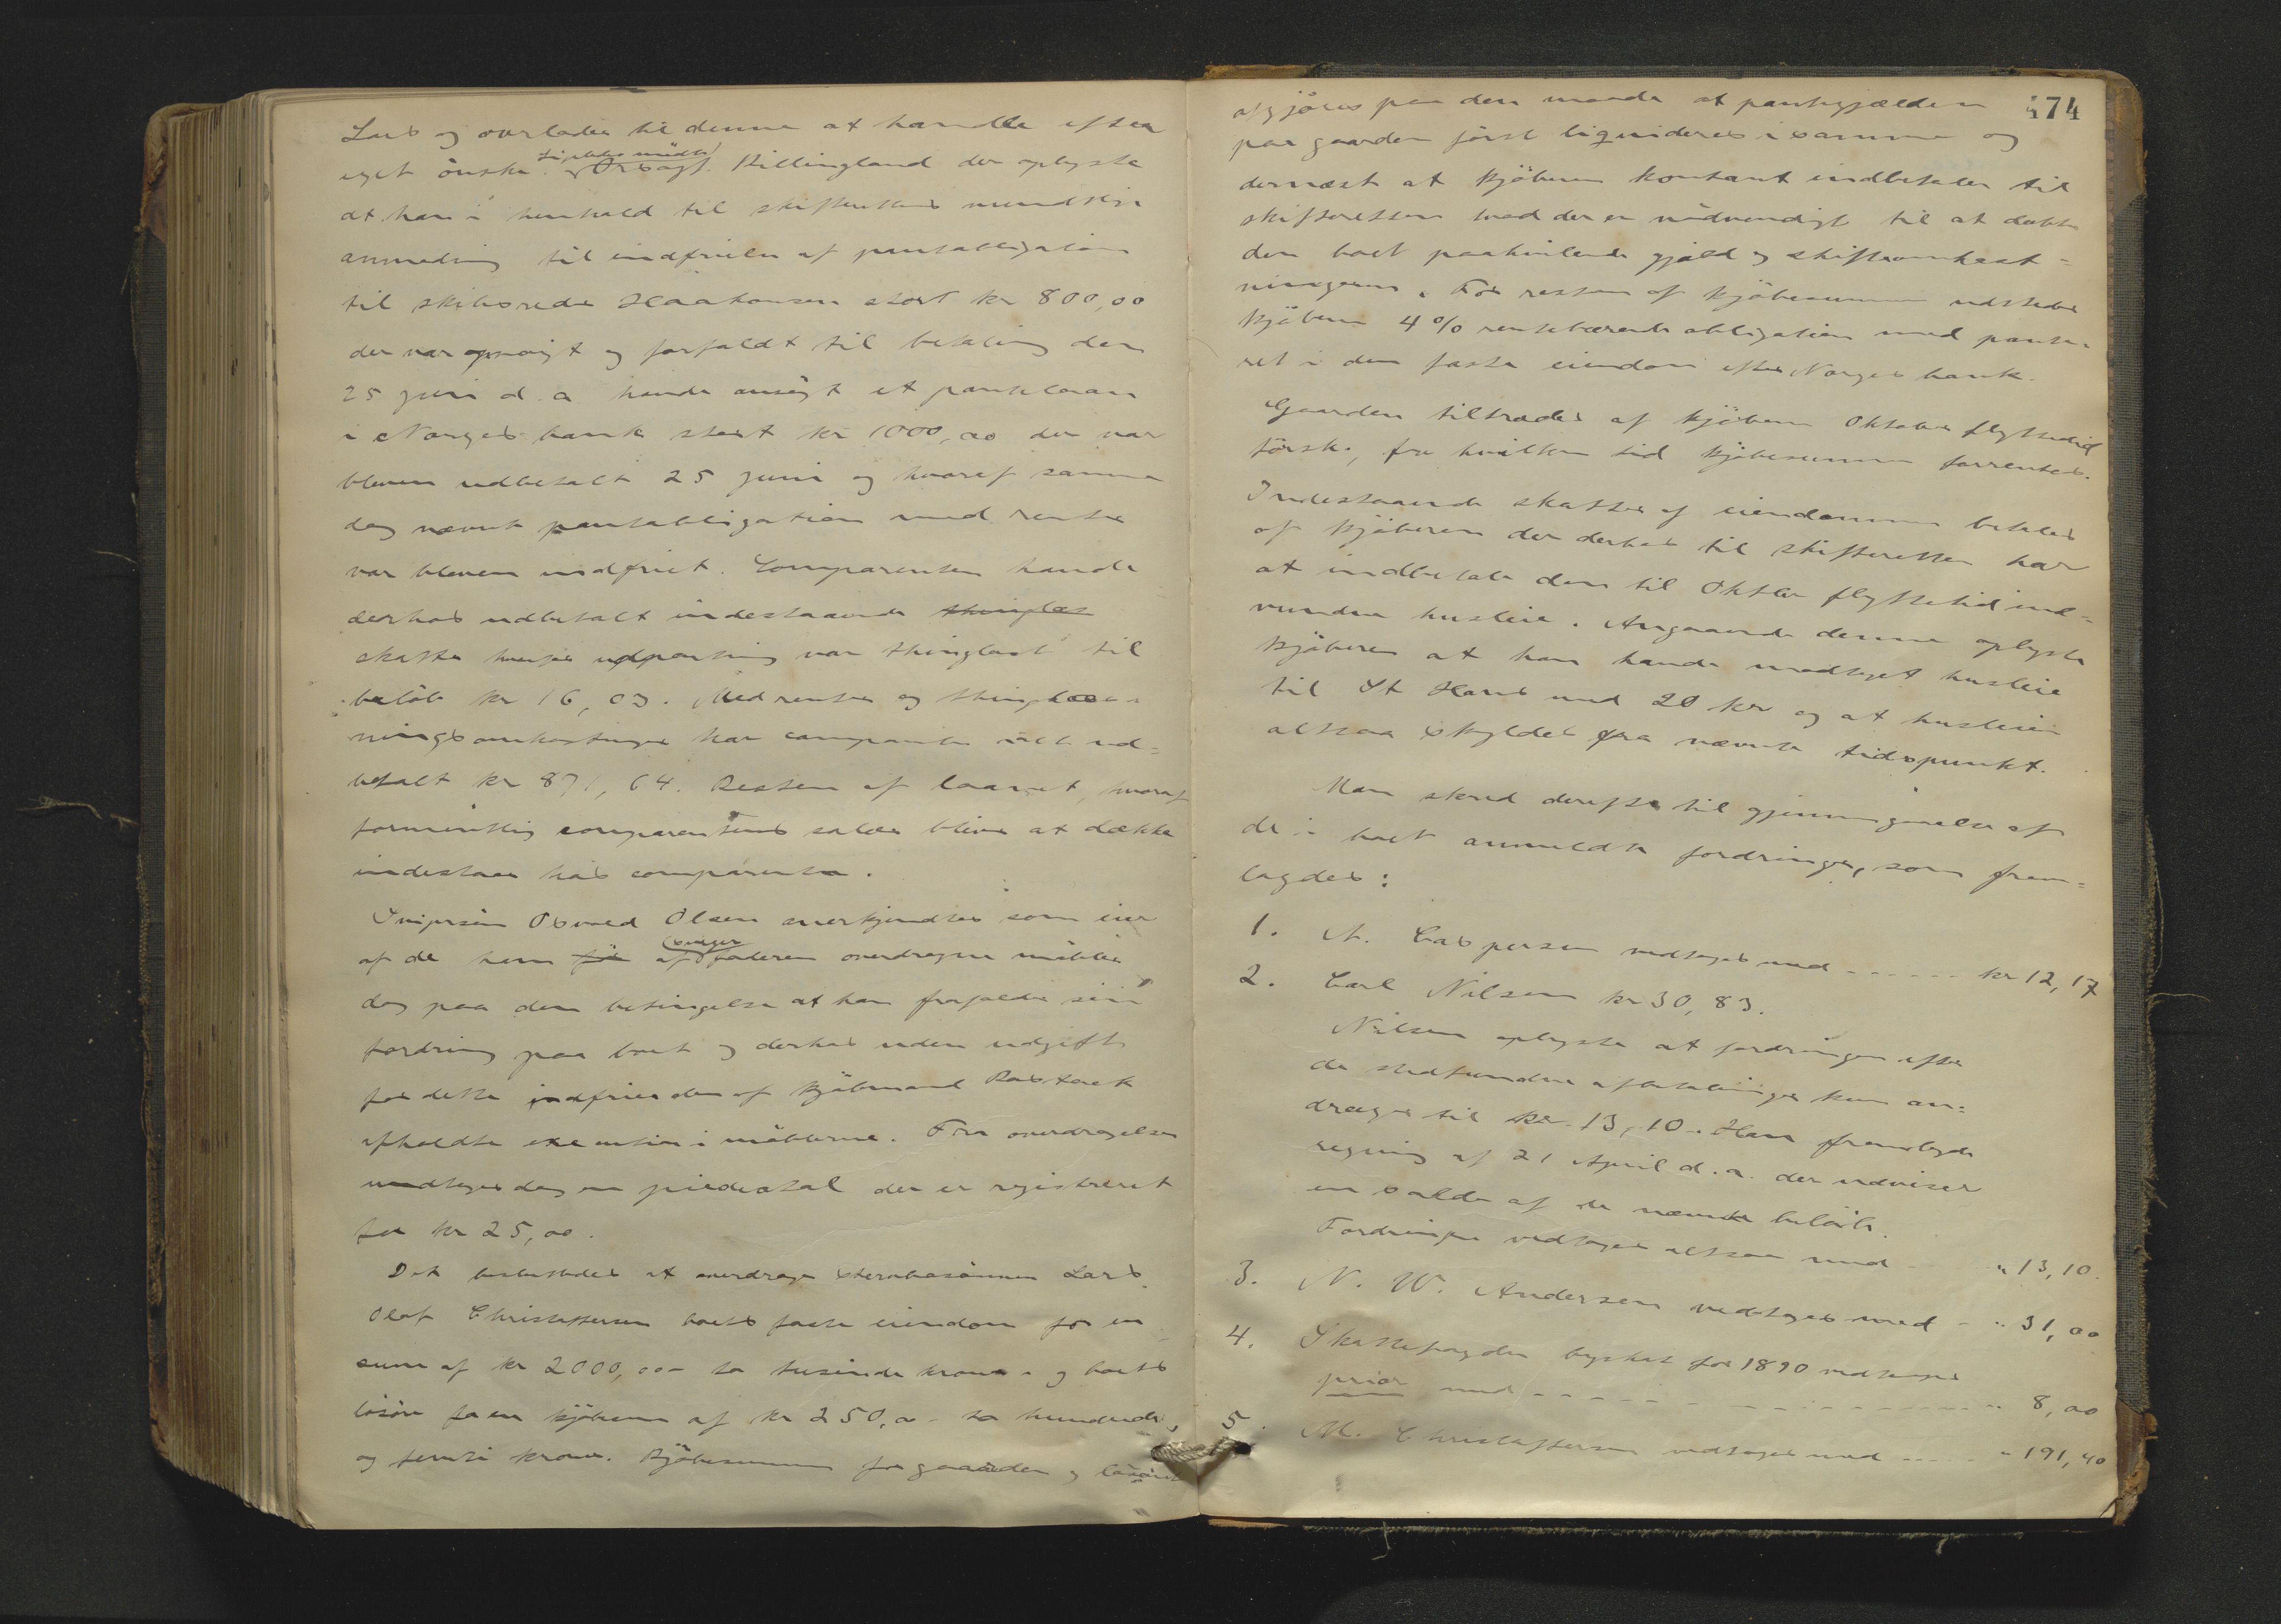 Lars og overlades til denne at handle efter
eget önske. Ligeledes mödte Orsagf. Killingland der oplyste
at han i henhold til skifterettens mundtlige
anmodning til indfrielse af pantobligation
til skibsreder Haakonsen stort kr 800,00
der var opsagt og forfaldt til betaling den
25 juni d. a havde ansögt et pantelaan
i Norges bank stort kr 1000,00 der var
bleven udbetalt 25 juni og hvoraf samme
dag nævnte pantobligation med renter
var bleven indfriet. Comparenten havde
derhos udbetalt indestaaende thinglæs
skatter hvorfor udpantning var thinglæst til
belöb kr 16,03. Med renter og thinglæs-
ningsomkostninger har comparenten ialt ud=
betalt kr 871,64. Resten af laanet, hvoraf
formentlig comparentens salær bliver at dække
indestaar hos comparenten.
Ingeniör Osvald Olsen anerkjendtes som eier
af de ham för af faderen overdragne möbler
dog paa den betingelse at han frafalder sin
fordring paa boet og derhos uden udgift
for dette indfrier den af kjöbmand Rostock
afholdte execution i möblerne. Fra overdragelsen
undtages dog en piedestal der er registreret
for kr 25,00.
Det besluttedes at overdrage sternbosönnen Lars
Olaf Christoffersen boets faste eiendom for en
sum af kr 2000,00 - to tusinde kroner - og boets
lösöre for en kjöbesum af kr 250,00 - to hundrede
og femti kroner. Kjöbesummen for gaarden og lösöret
474
afgjöres paa den maade at pantegjælden
paa gaarden först liquideres i samme og
dernæst at kjöberen kontant indbetaler til
skifteretten hvad der er nödvendigt til at dække
den boet paahvilende gjæld og skifteomkost=
ningerne. For resten af kjöbesummen udsteder
kjöberen 4% rentebærende obligation med pante=
ret i den faste eiendom efter Norges bank.
Gaarden tiltrædes af kjöberen Oktober flyttetid
förstk., fra hvilken tid kjöbesummen forrentes.
Indestaaende skatter af eiendommen betales
af kjöberen der derhos til skifteretten har
at indbetale den til Oktbr flyttetid ind=
vundne husleie. Angaaende denne oplyste
kjöberen at han havde modtaget husleie
til St Hans med 20 kr og at husleien
altsaa skyldes fra nævnte tidspunkt.
Man skred derefter til gjennemgaaelse af
de i boet anmeldte fordringer, som frem=
lagdes:
1. A. Caspersen vedtages med - - - - - - kr 12,17
2. Carl Nilsen kr 30,83.
Nilsen oplyste at fordringen efter
de stedfundne afbetalinger kun an=
drager til kr 13,10. Han fremlagde
regning af 21 April d. a. der udviser
en saldo af de nævnte belöb.
Fordringen vedtages altsaa med " 13,10.
3. N. W. Andersen vedtages med - " 31,00
4. Skattefogden byskat for 1890 vedtages
prior med - - - - - - - - - - - " 8,00
5. M. Christoffersen vedtages med - - - - - " 191,40